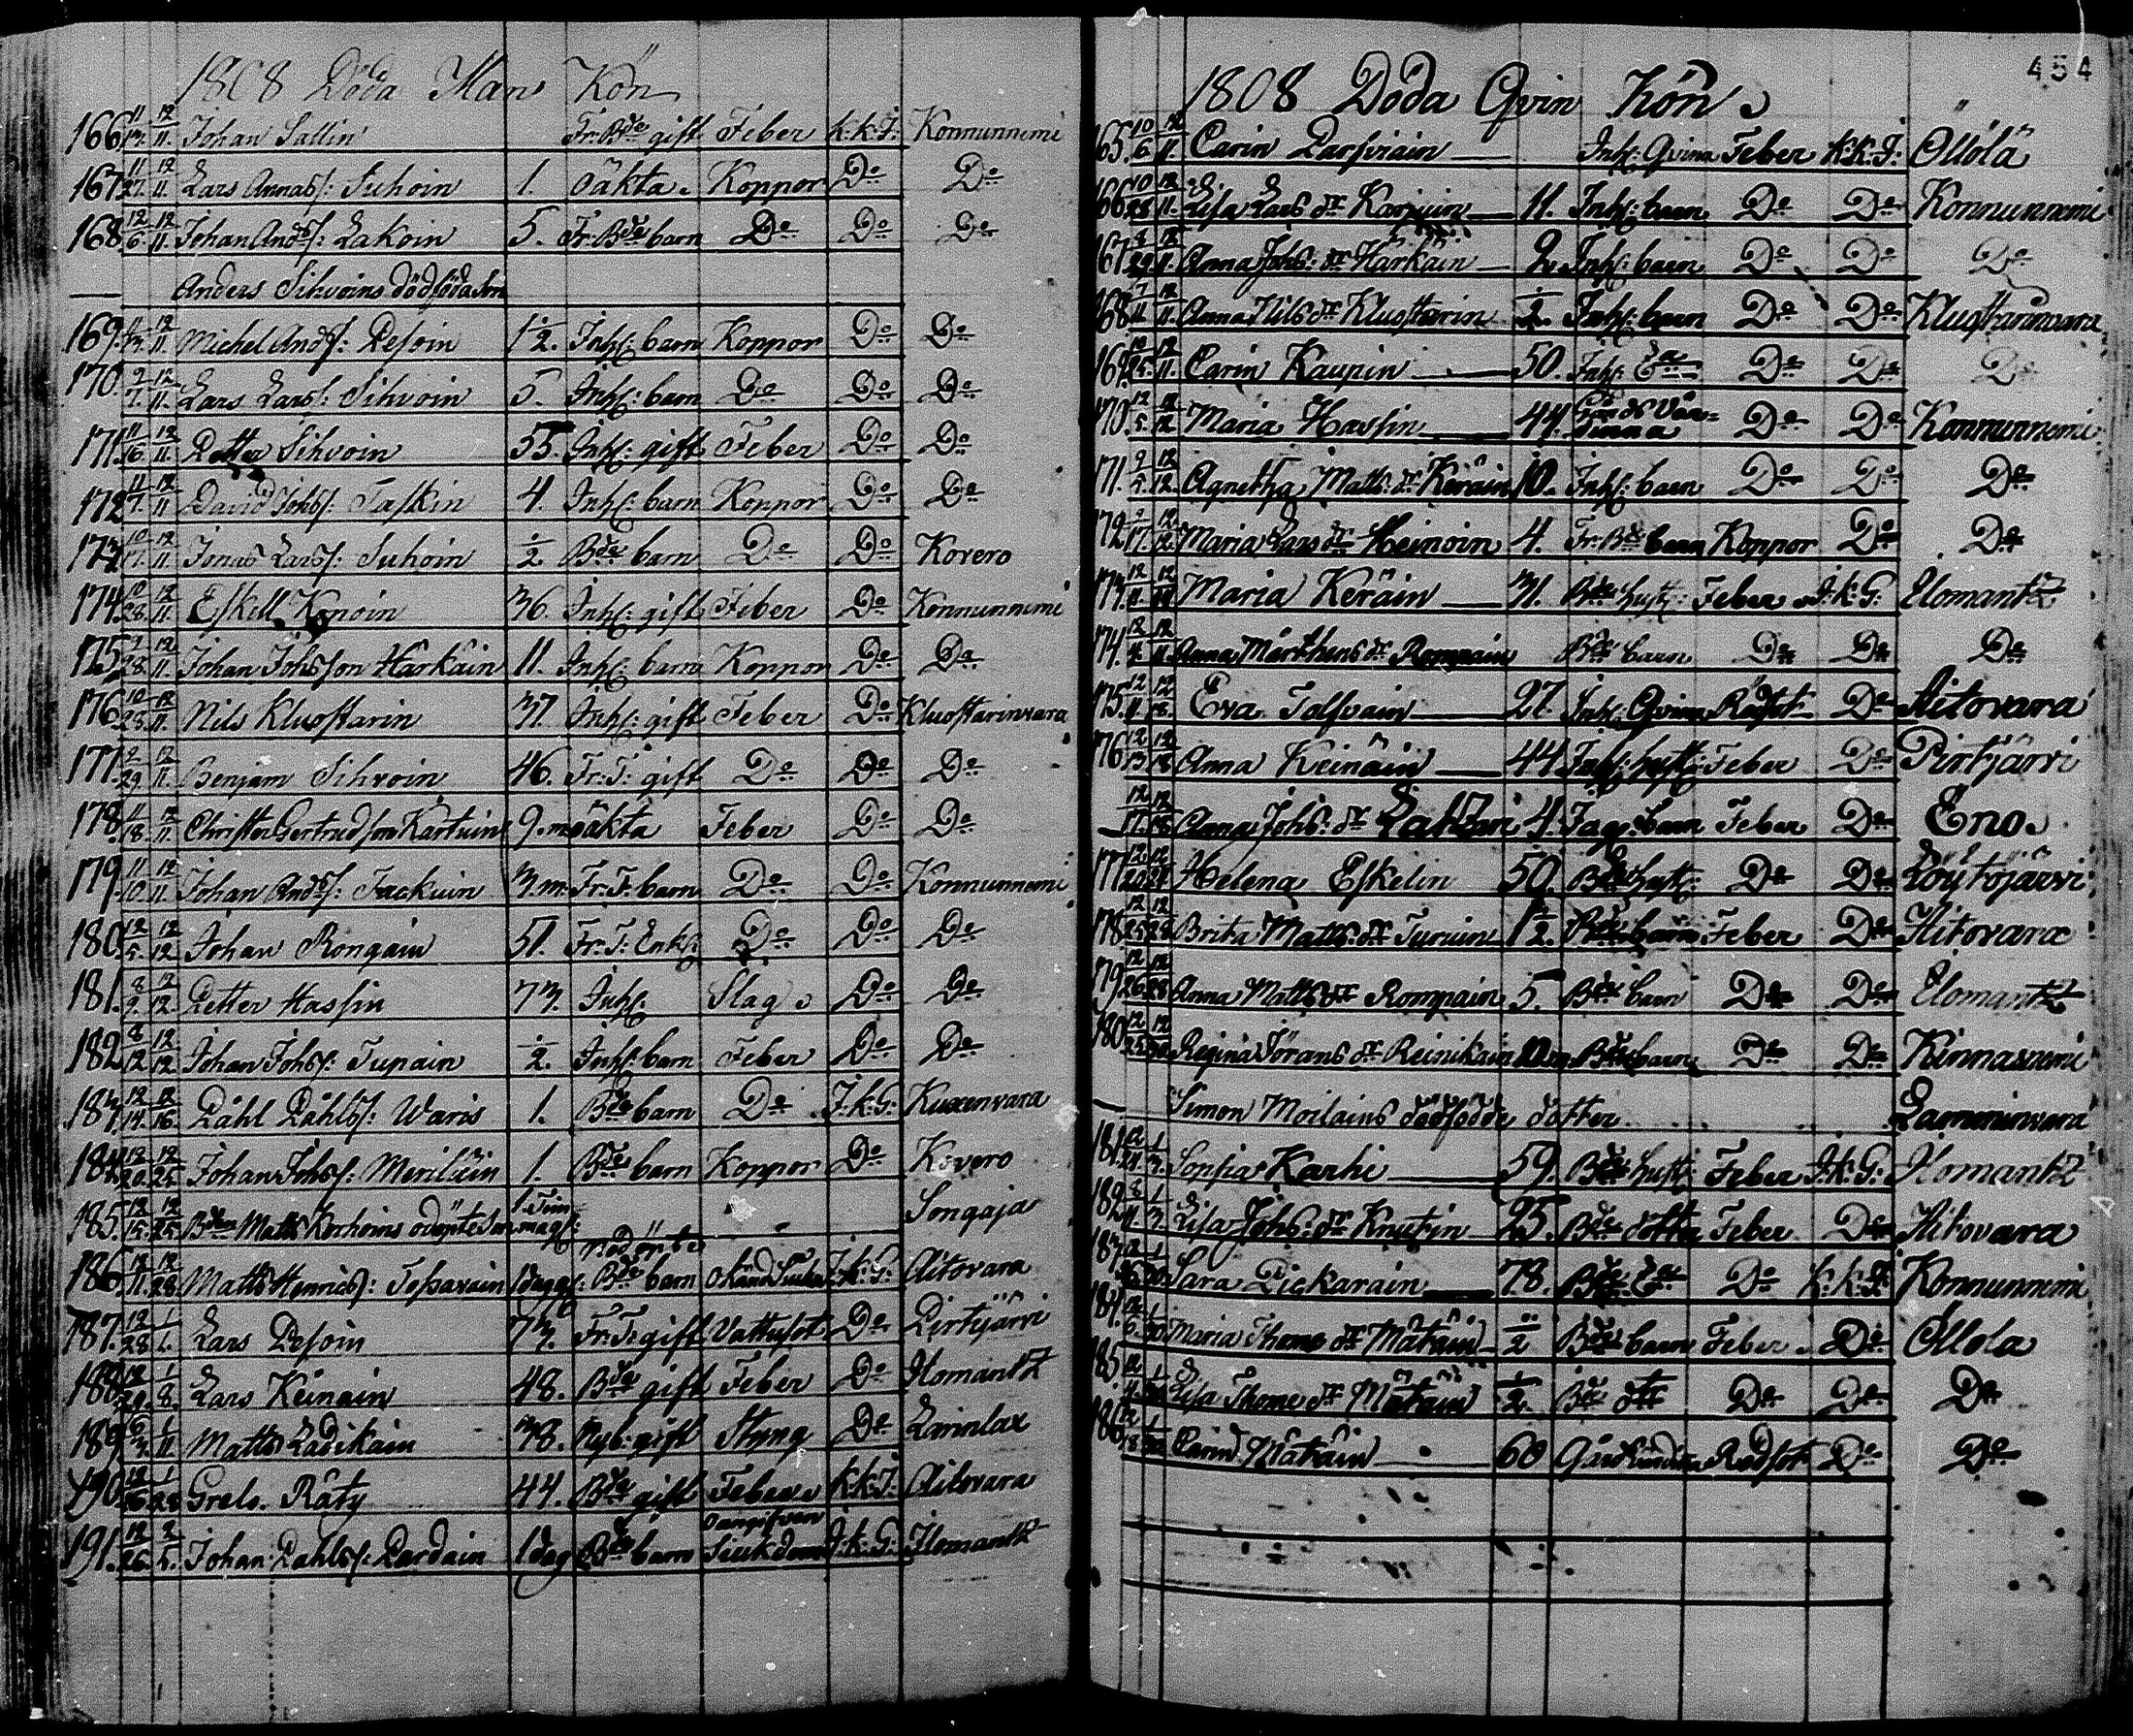 1808 Döda Man Kön
166. 11/13. 12/11. Johan Sallin Fr: Bde gift Feber k:k:J: Konnunnemi
167. 11/27. 12/11. Lars Annaes: Suhoin 1. oäkta. Koppor Do Do
168. 12/6. 12/11. Johan Ands: Lakoin 5. Fr: Bde barn Do Do Do
Anders Sihvoins dödföda Son
169. 12/11. Michel Ands: Pesoin 1 1/2. Inhs: barn Koppor Do Do
170. 9/7. 12/11. Lars Lars: Sihvoin 5. Inhs: barn Do Do Do
171. 11/16. 12/11. Petter Sihvoin 55. Inhs: gift Feber Do Do
172. 11/7. 12/11. David Johs: Taskin 4. Inhs: barn Koppor Do Do
173. 10/17. 12/11. Jonas Lars: Suhoin 1/2. Bde barn Do Do Kovero
174. 10/28. 12/11. Eskell Konoin 36. Inhs: gift Feber Do Konnunnemi
175. 9/28. 12/11. Johan Johsson Härkäin 11. Inhs: barn Koppor Do Do
176. 10/28. 12/11. Nils Kluostarin 37. Inhs: gift Feber Do Kluostarinvara
177. 9/29. 12/11. Benjam Sihvoin 46. Fr: T: gift Do Do Do
178. 11/18. 12/11. Christer Gertrudson Kärtuin 9. m oäkta Feber Do Do
179. 11/10. 12/11. Johan Ands: Tackuin 3. m: Fr: T: barn Do Do Konnunnemi
180. 12/5. 12/12. Johan Rongain 51. Fr: T: Enkl: Do Do Do
181. 8/9. 12/12. Petter Hassin 73. Inhs: Slag Do Do
182. 8/12. 12/12. Johan Johs: Tupain 1/2. Inhs: barn Feber Do Do
183. 12/14. 12/16. Påhl Påhls: Waris 1. Bde barn Do J:k:G: Kuxenvara
184. 12/20. 12/25. Johan Johs: Meriläin 1. Bde barn Koppor Do Kovero
185. 12/15. 12/25. Bden Matts Korhoins odöpte Son 1. Tim: mags: Songaja
186. 12/11. 12/28. Matts Henrics: Tossavain 1 dag gs: Nödöpte Bde barn okänd Siukd J:k:G: Aitovara
187. 12/28. 1/1. Lars Pesoin 73. Fr: T: gift Vattusot Do Pirtijärvi
188. 12/29. 1/8. Lars Keinäin 48. Bde gift Feber Do Ilomantz
189. 6/3. 1/11. Matts Ladikain 38. Nyb: gift Styng Do Lwinlax
190. 12/16. 1/28. Grels. Räty 44. Bde gift Feber k:k:J: Aitovara
191. 12/26. 2/5. Johan Påhls: Pardain 1 dag Bde barn Oangifven Siukdom J:k:G: Ilomantz
454
1808 Döda Qvin Kön
165. 10/6. 12/11. Carin Parsviain Inhs: Qvina Feber k:k:J: Öllölä
166. 10/28. 12/11. Lisa Lars dr Karjuin 11. Inhs: barn Do Do Konnunnemi
167. 8/29. 12/11. Anna Johs: dr Härkäin 2. Inhs: barn Do Do Do
168. 7/11. 12/11. Anna Nils dr Kluostarin 1/2. Inhs: barn Do Do Kluostarinvara
169. 12/11. Carin Kaupin 50. Inhs: Do Do Do
170. 12/5. 12/12. Maria Hassin 44. Do Do Konnunnemi
171. 9/5. 12/12. Agnetha Matts dr Keräin 10. Inhs: barn Do Do Do
172. 9/17. 12/12. Maria Lars dr Heinoin 4. Fr: Bde barn Koppor Do Do
173. 12/11. Maria Keräin 31. Bde hust: Feber J:k:G: Ilomantz
174. 12/11. Anna Mårthens dr Rompain Bde barn Do Do Do
175. 12/11. 12/18. Eva Tolfvain 27. Inhs: Qvina Rödsot Do Aitovara
176. 12/13. 12/18. Anna Keinäin 44. Inhs: hust: Feber Do Pirtijärvi
12/17. 12/18. Anna Johs: dr 4. barn Feber Do Eno.
177. 12/20. 12/27. Helena Eskelin 50. Bde hust: Do Do Löytöjärvi
178. 12/25. 12/28. Brita Matts: dr Turuin 1 1/2. Bde barn Feber Do Aitovara
179. 12/26. 12/28. Anna Matts dr Rompain 5. Bde barn Do Do Ilomantz
180. 12/25. 12/30. Regina Jörans dr Reinikain Bde barn Do Do Kinnasnemi
Simon Moilains dödfödde dotter Larminvara
181. 12/21. 1/3. Sophia Karhi 59. Bde hust: Feber J:k:G: Ilomantz
182. 8/11. 1/3. Lisa Johs: dr Knutin 25. Bde dotter Feber Do Aitovara
183. Sara Pickarain 78. Bde Do k:k:J: Konnunnemi
184. Maria Thoms dr Mätäin 1/2 Bde barn Feber Do Öllölä
185. Lisa Thoms dr Mätäin 1/2. Bde dtr Do Do Do
186. Carin Mätäin 60 Rödsot Do Do